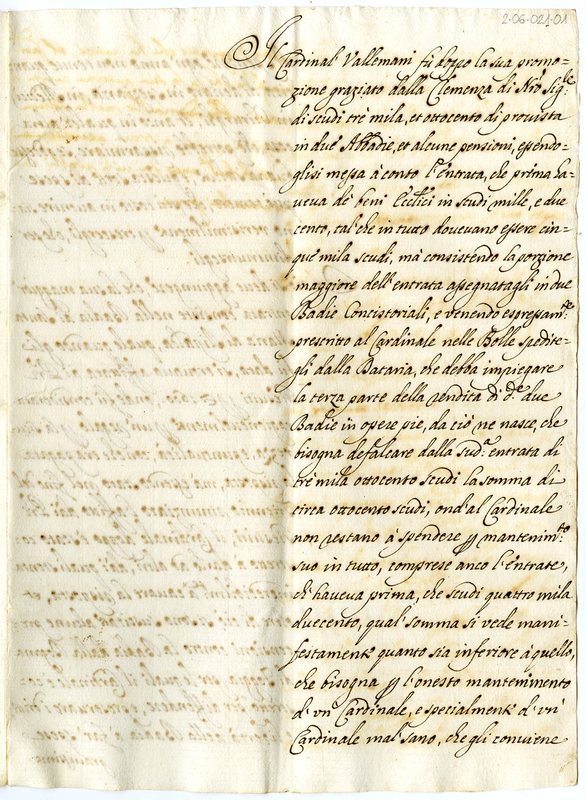 2-06-021-01
Il Cardinal' Vallemani fù doppo la sua promo=
zione graziato dalla Clemenza di Nrō Sig.re
di scudi trè mila, et ottocento di provista
in due Abbadie, et alcune pensioni, essendo=
glisi messa à conto l'entrata, che prima ha=
veva de' beni Eccl'ici in scudi mille, e due
cento, tal' che in tutto dovevano essere cin=
que mila scudi, mà consistendo la porzione
maggiore dell' entrata assegnatagli in due
Badie Concistoriali, e venendo espressam.te
prescritto al Cardinale nelle Bolle spedite=
gli dalla Dataria, che debba impiegare
la terza parte della rendita di d.e due
Badie in opere pie, da ciò ne nasce, che
bisogna defalcare dalla sud.a entrata di
trè mila ottocento scudi la somma di
circa ottocento scudi, ond' al Cardinale
non restano à spendere p mantenim.to
suo in tutto, comprese anco l'entrate,
ch' haveva prima, che scudi quattro mila
duecento, qual' somma si vede mani=
festamente quanto sia inferiore à quello,
che bisogna p l'onesto mantenimento
d' un' Cardinale, e specialment' d' un'
Cardinale mal' sano, che gli conviene